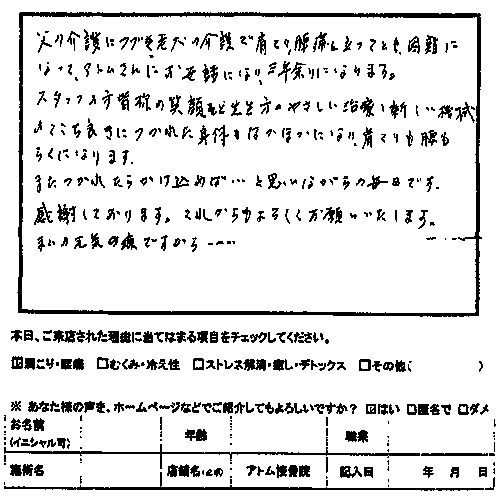 父の介護につづき老犬の介護で肩こり、腰痛、立ってるのも困難に
なって、アトムさんにお世話になり、三年余りになります。
スタッフの方皆様の笑顔と先生方のやさしい治療と新しい機械
のここち良さにつかれた身体もほかほかになり、肩こりも腰も
らくになります。
またつかれたらかけ込めば… と思いながらの毎日です。
感謝しております。これからもよろしくお願いいたします。
私の元気の源ですから……
本日、ご来店された理由に当てはまる項目をチェックしてください。
☑肩こり・腰痛 □むくみ・冷え性 □ストレス解消・癒し・デトックス □その他( )
※ あなた様の声を、ホームページなどでご紹介してもよろしいですか? ☑はい □匿名で □ダメ
お名前
(イニシャル可) 年齢 職業
施術名 店舗名(必須) アトム接骨院 記入日 年 月 日